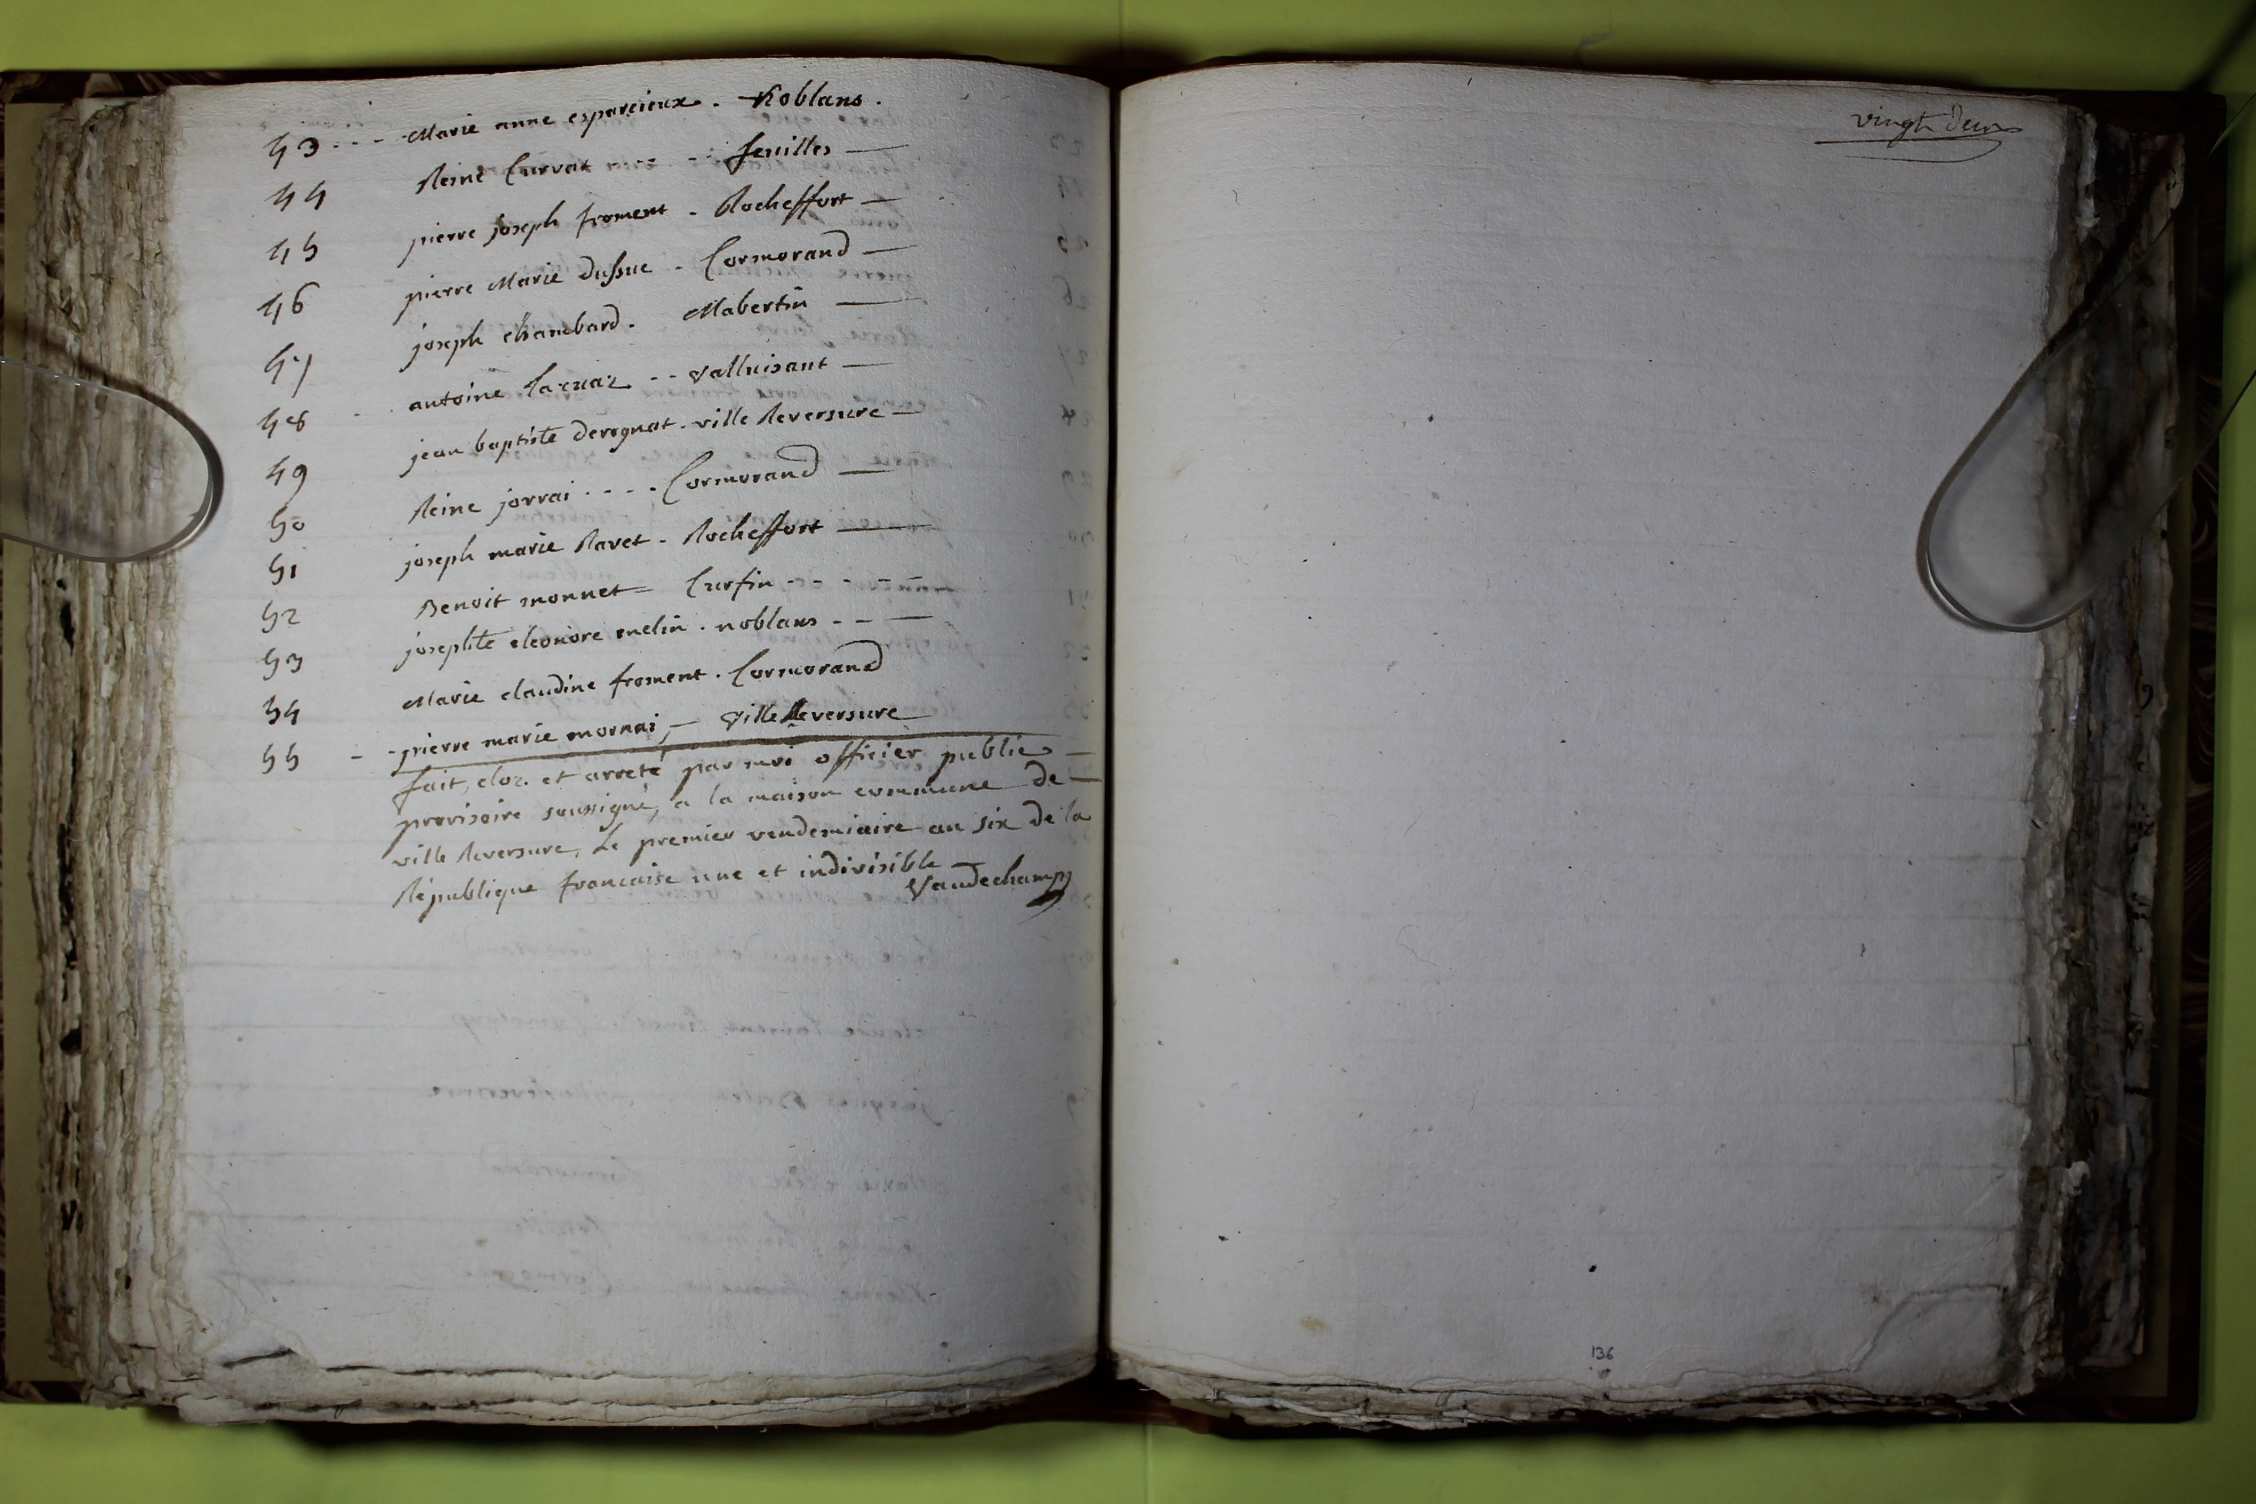 43 - - - Marie anne esparcieux - Noblans .
44 Reine Curvat - - - - - feuilles —
45 pierre joseph froment - Rocheffort —
46 pierre Marie Dussue - Cormorand —
47 joseph chambard . Mabertin —
48 antoine - - valluisant —
49 jean baptiste derognat . ville Reversure —
50 Reine jorrai - - - - Cormorand —
51 joseph marie Ravet - Rocheffort —
52 Benoit monnet = Curfin - - - - -
53 josephte eleonore melin . noblans - - —
54 Marie claudine froment . Cormorand
55 - - pierre marie mornai, — ville Reversure
fait, cloz. et arreté par moi officier public —
provisoire soussigné, a la maison commune de —
ville Reversure, Le premier vendemiaire an six de la
République francaise une et indivisible —
Vaudechamp
vingt deux
136